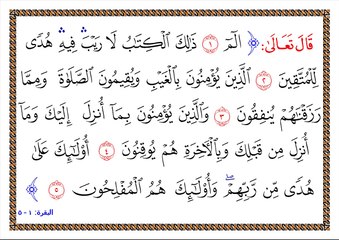 قَالَ تَعَالَىٰ: ﴿ الٓمٓ ۝١ ذَٰلِكَ ٱلْكِتَٰبُ لَا رَيْبَ ۛ فِيهِ ۛ هُدًى
لِّلْمُتَّقِينَ ۝٢ ٱلَّذِينَ يُؤْمِنُونَ بِٱلْغَيْبِ وَيُقِيمُونَ ٱلصَّلَوٰةَ وَمِمَّا
رَزَقْنَٰهُمْ يُنفِقُونَ ۝٣ وَٱلَّذِينَ يُؤْمِنُونَ بِمَآ أُنزِلَ إِلَيْكَ وَمَآ
أُنزِلَ مِن قَبْلِكَ وَبِٱلْءَاخِرَةِ هُمْ يُوقِنُونَ ۝٤ أُو۟لَٰٓئِكَ عَلَىٰ
هُدًى مِّن رَّبِّهِمْ ۖ وَأُو۟لَٰٓئِكَ هُمُ ٱلْمُفْلِحُونَ ۝٥ ﴾
البقرة: ١ - ٥